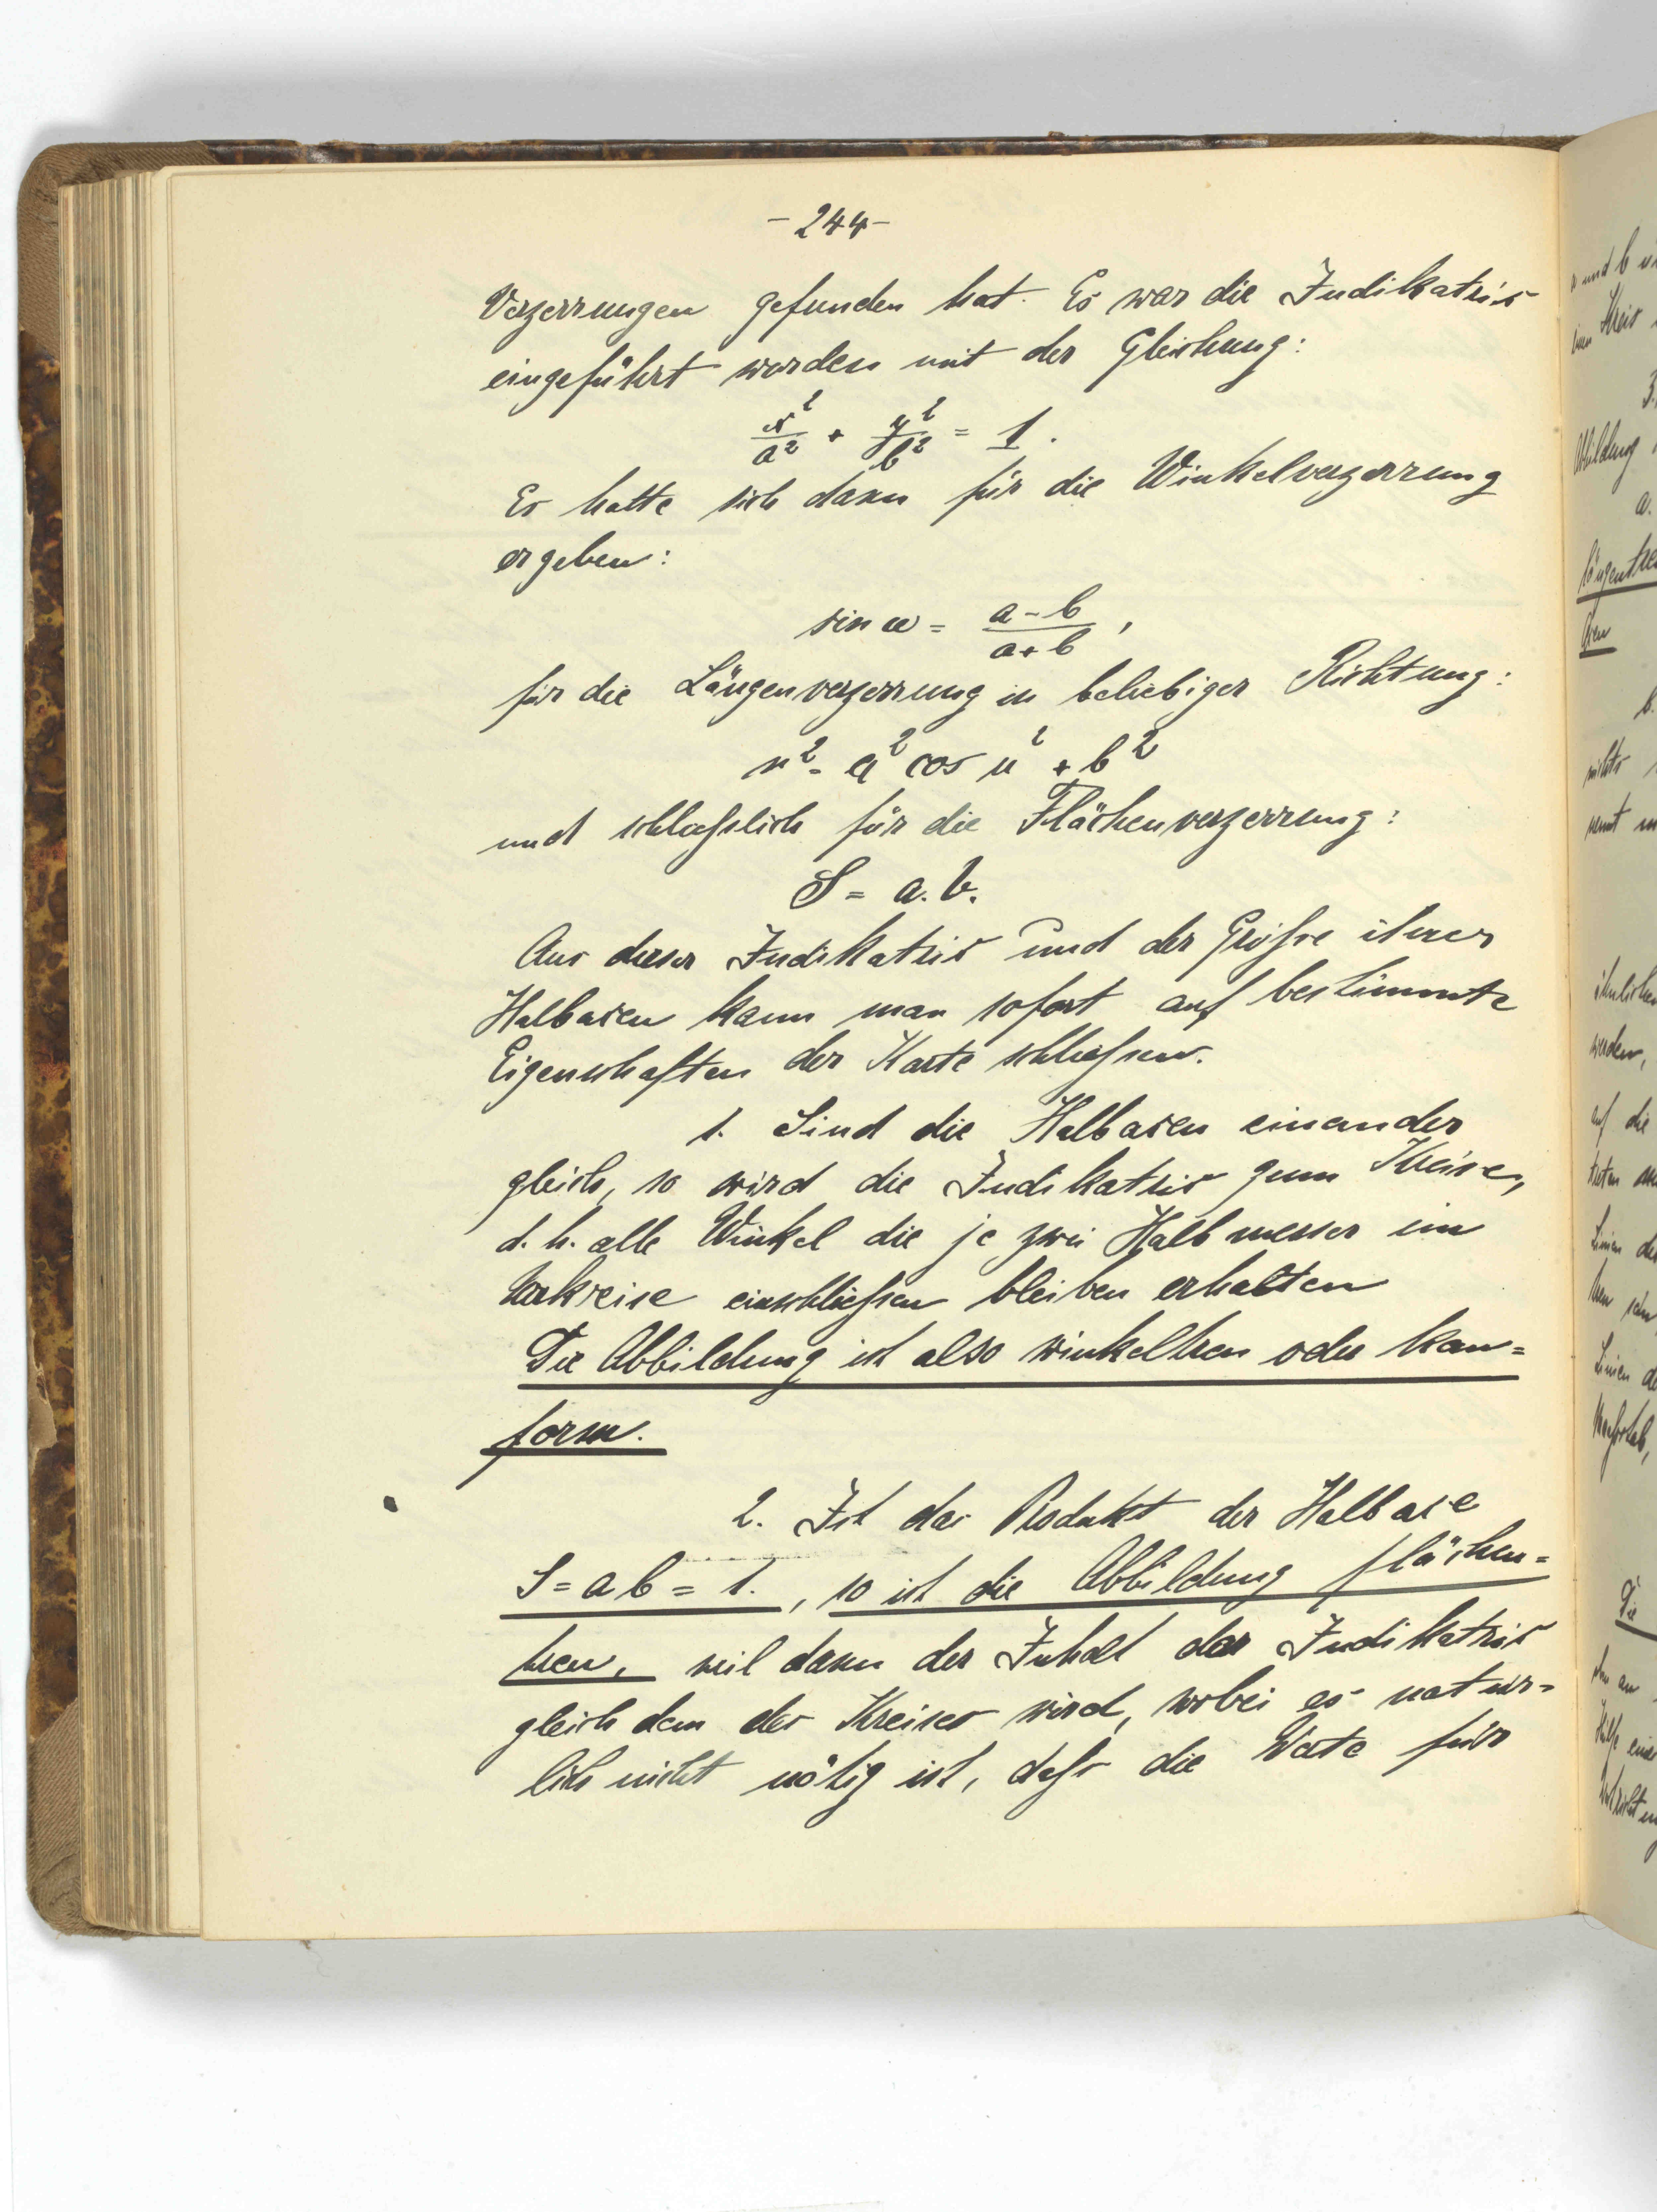 - 244 -
Verzerrungen gefunden hat. Es war die Indikatrix
eingeführt worden mit der Gleichung:
x²/a² + y²/b² = 1.
Es hatte sich dann für die Winkelverzerrung
ergeben:
sin ω = a-b/a+b,
für die Längenverzerrung in beliebiger Richtung:
n² = a² cos u² + b²
und schließlich für die Flächenverzerrung:
S = a.b.
Aus dieser Indikatrix und der Größe ihrer
Halbaxen kann man sofort auf bestimmte
Eigenschaften der Karte schließen.
1. Sind die Halbaxen einander
gleich, so wird die Indikatrix zum Kreise,
d. h. alle Winkel die je zwei Halbmesser im
Urkreise einschließen bleiben erhalten
Die Abbildung ist also winkeltreu oder kon=
form.
2. Ist das Produkt der Halbaxe
S = a b = 1., so ist die Abbildung flächen=
treu, weil dann der Inhalt der Indikatrix
gleich dem des Kreises wird, wobei es natür=
lich nicht nötig ist, daß die Werte für
a und b
Kreis
3.
Abbildung
a.
längentreu
b.
nichts
nennt
ähnlichen
werden,
auf die
treten
Linien
Linien
Maßstab,
Die
an
Hilfe